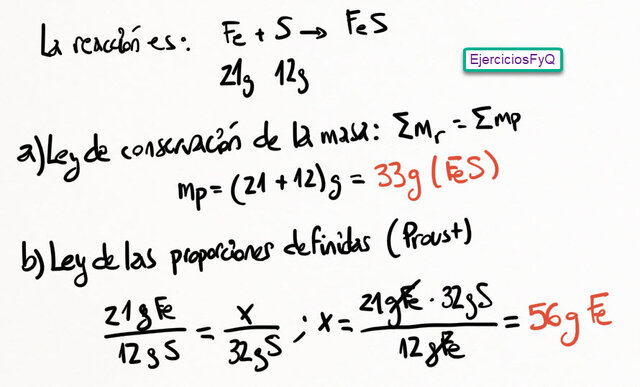 La reacción es: Fe + S → FeS
EjerciciosFyQ
21g 12g
a) Ley de conservación de la masa: ΣMr = Σmp
mp = (21 + 12)g = 33g (FeS)
b) Ley de las proporciones definidas (Proust)
21g Fe / 12g S = x / 32g S ; x = 21gFe · 32gS / 12gFe = 56g Fe